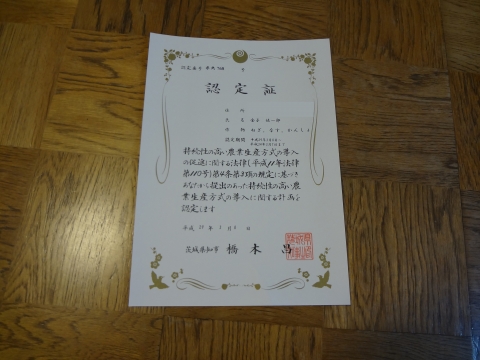 認定証
住所
氏名
作物 ねぎ、なす、かんしょ
認定期間
持続性の高い農業生産方式の導入
の促進に関する法律(平成11年法律
第110号)第4条第3項の規定に基づき
あなたから提出のあった持続性の高い農
業生産方式の導入に関する計画を
認定します
平成 年 月 日
茨城県知事 橋本 昌